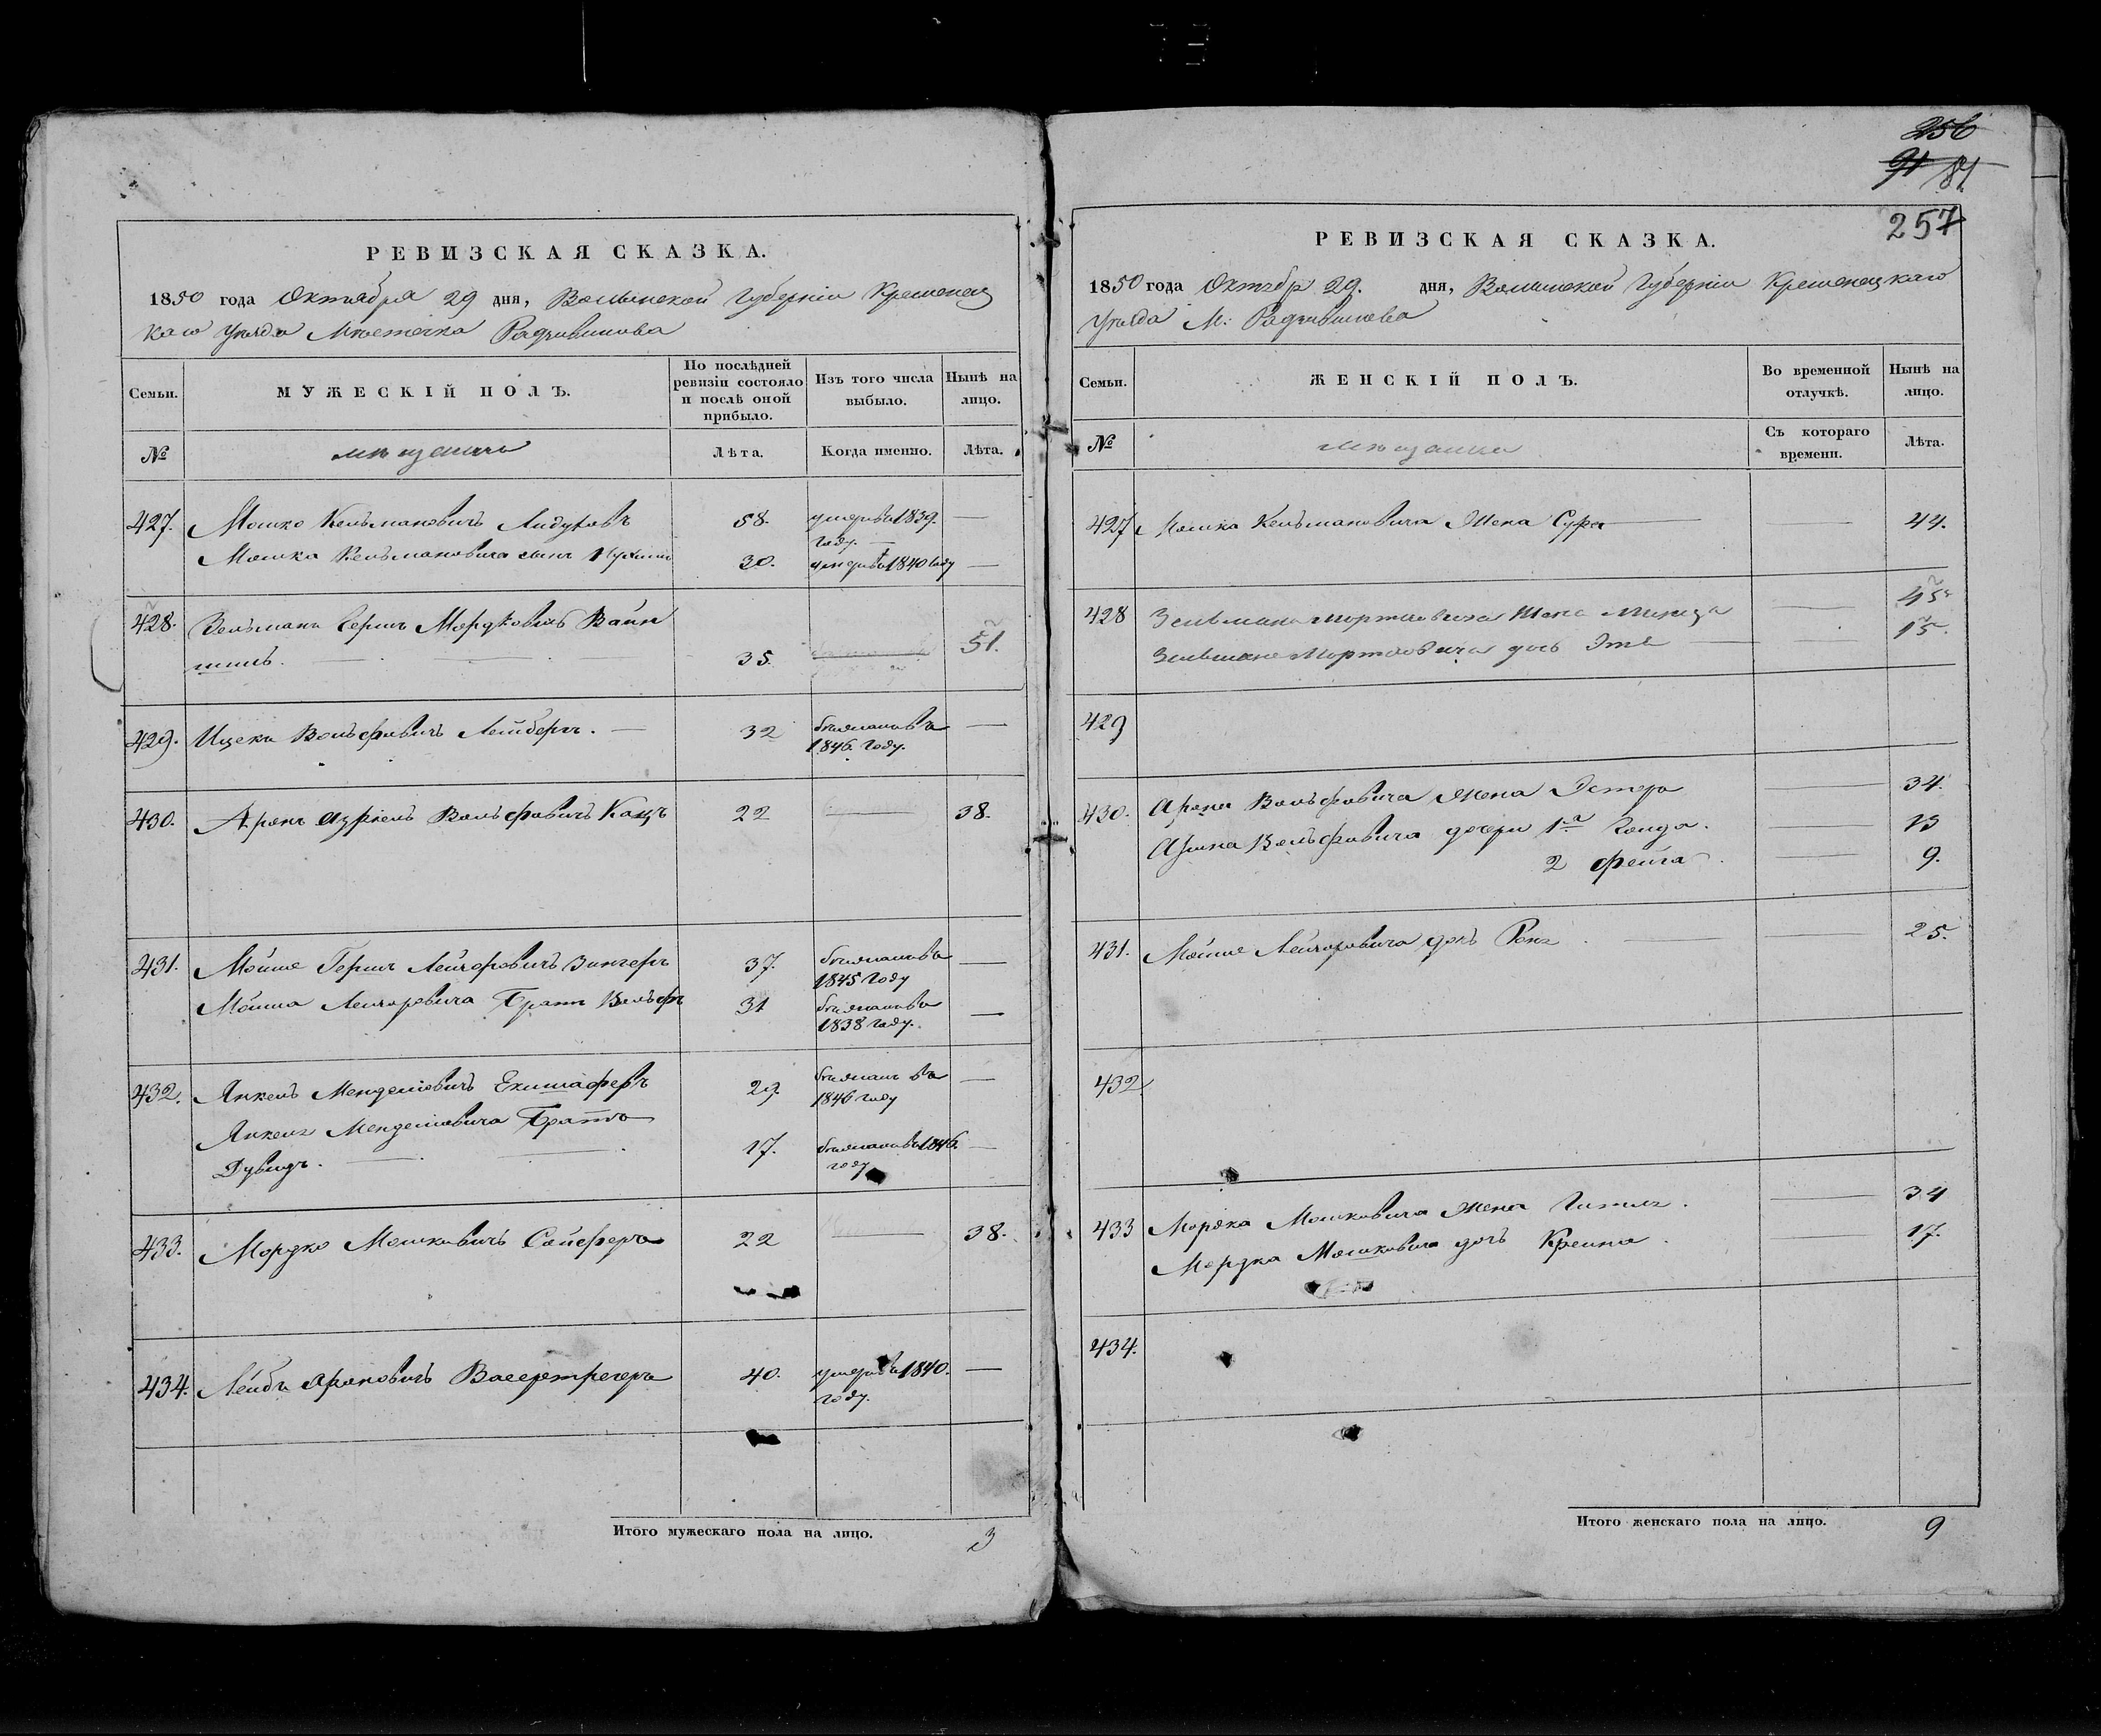 256
91 87
257
РЕВИЗСКАЯ СКАЗКА.
1850 года Октября 29 дня, Волынской Губерніи Кременец
каго Уѣзда Мѣстечка Радзивилова
Семьи.
МУЖЕСКІЙ ПОЛЪ.
По послѣдней ревизіи состояло и послѣ оной прибыло.
Изъ того числа выбыло.
Нынѣ на лицо.
№
мѣщане
Лѣта.
Когда именно.
Лѣта.
427. Мошко Кельмановичъ 58. умеръ въ 1839. году. —
Мошка Кельмановича сынъ 30. умеръ въ 1840 году —
428. Зельманъ Гершъ Мордковичъ Вайн
шиль. 35. 51.
429. Ицекъ Вольфовичъ Лейберъ. 32 бѣжалъ въ 1846 году. —
430. Аронъ Азріель Вольфовичъ Кацъ 22 38.
431. Мойше Гершъ Лейзоровичъ Зингеръ 37. бѣжалъ въ 1845 году —
Мойша Лейзоровича Братъ Вольфъ 31 бѣжалъ въ 1838 году. —
432. Янкель Менделіовичъ 29. бѣжалъ въ 1846 году —
Янкеля Менделіовича Братъ
Дувидъ. 17. бѣжалъ въ 1846. году —
433. Мордко Мошковичъ Сойферъ 22 38.
434. Лейбъ Ароновичъ Вассертрегеръ 40. умеръ въ 1840. году. —
Итого мужескаго пола на лицо. 3
РЕВИЗСКАЯ СКАЗКА.
1850 года Октябр 29. дня, Волынской Губерніи Кременецкаго
Уѣзда М: Радзивилова
Семьи.
ЖЕНСКІЙ ПОЛЪ.
Во временной отлучкѣ.
Нынѣ на лицо.
№
мѣщанки
Съ котораго времени.
Лѣта.
427 Мошка Кельмановича Жена Сура 44.
428 Зельмана Мортковича Жена 45.
Зельмана Мортковича дочь Этя 15.
429
430. Арона Вольфовича Жена Эстера 34.
Арона Вольфовича дочери 1я 13
2 Фейга 9.
431. Мойше Лейзоровича дочь 25.
432
433 Мордка Мошковича Жена Гитля. 34
Мордка Мошковича дочь Крейна. 17.
434.
Итого женскаго пола на лицо. 9